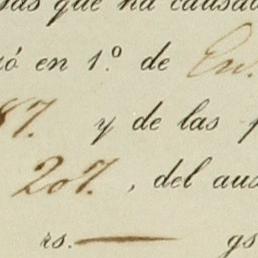 que ha causad
ó en 1.º de En.
87. y de las
207. , del aus
rs. gs